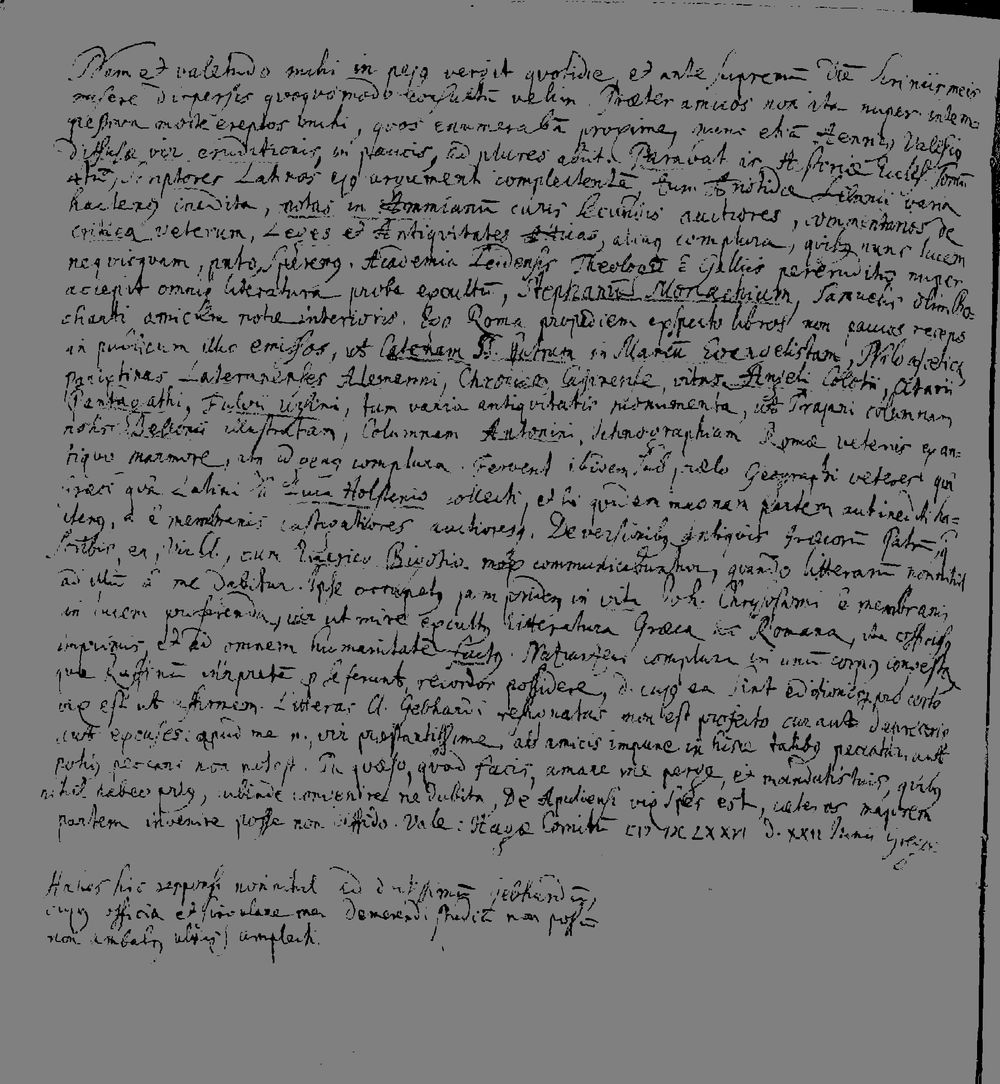 Nam et valetudo mihi in pejq vergit quotidie, et ante supremū diē scriniis meis
misere dispersis quoquomodo consultū velim. Præter amicos non ita nuper intem-
pestiva morte ereptos mihi, quos enumerabā proxime, nunc etiā Henric⁹ Valesiq
diffusæ vir eruditionis, in paucis, ad plures abiit. Parabat is Historiæ Eccles. Tomū
4tū, Scriptores Latinos ejq argumenti complectentē, tum Aristidæ Libanii varia
hactenq inedita, notas in Ammianū curis secundis auctiores, commentarios de
critica veterum, Leges et Antiquitates Atticas, aliaq complura, quibq nunc lucem
nequisquam, puto, sperenq. Academia Leidensis Theologū ē Gallis pereruditū nuper
accepit omniq literatura probe excultū, Stephanū Morlachium, Samuelis
chanti amicum notæ interioris. Ego Roma propediem exspecto libros non paucos recens
in publicum illic emissos, ut Catenam SS. Patrum in Marcū Evangelistam, Nili ascetica,
parietinas Lateranenses Alemanni, Chronica Casinense, vitas Angeli Colotii, Octavii
Pantagathi, Fulvii Ursini, tum varia antiquitatis monumenta, ut Trajani columnam
notis Bellorii illustratam, Columnam Antonini, Ichnographiam Romæ veteris ex an-
tiquo marmore, aliaq complura. Fervent ibidem sub prælo Geographi veteres quā
Græci quā Latini a Luca Holstenio collecti, et hi quidem magnam partem antinediti ha-
ctenq, a ē membranis castigatiores auctioresq. De versionibq antiquis Græcorū Patrū, q
scribis, ea, Vir Cl., cum Emerico Bigotio mox communicabuntur, quando litterarū nonnihil
ad illū ā me dabitur. Ipse occupatq jam pridem in vita Joh. Chrysostomi ē membranis
in lucem proferenda, vir ut mire excultq litteratura Græca ac Romana, ita officiosq
imprimis, et ad omnem humanitatē factq. complura in unū corpq congesta
quæ Ruffinū interpretē præferunt, recordor possidere, d. cujq ea sint editionis, pro certo
vix est ut affirmem. Litteras Cl. Gebhardi resignatas non est profecto cur aut depreceris
aut excuses: apud me n., vir præstantissime, ab amicis impune in hisce talibq peccatur, aut
potiq peccari non potest. Tu quæso, quod facis, amare me perge, et mandatis tuis, quibq
nihil habeo priq, subinde convenire ne dubita. De Apuliensi vix spes est, ceteras majorem
partem invenire posse non diffido. Vale: Hagæ Comitū CIƆ IƆC LXXVI D. XXII Junii
Habes hic responsi nonnihil ad doctissimū Gebhardū,
cujq officia et singulare mei demerendi studiū non possū
non ambabq ulnis amplecti.